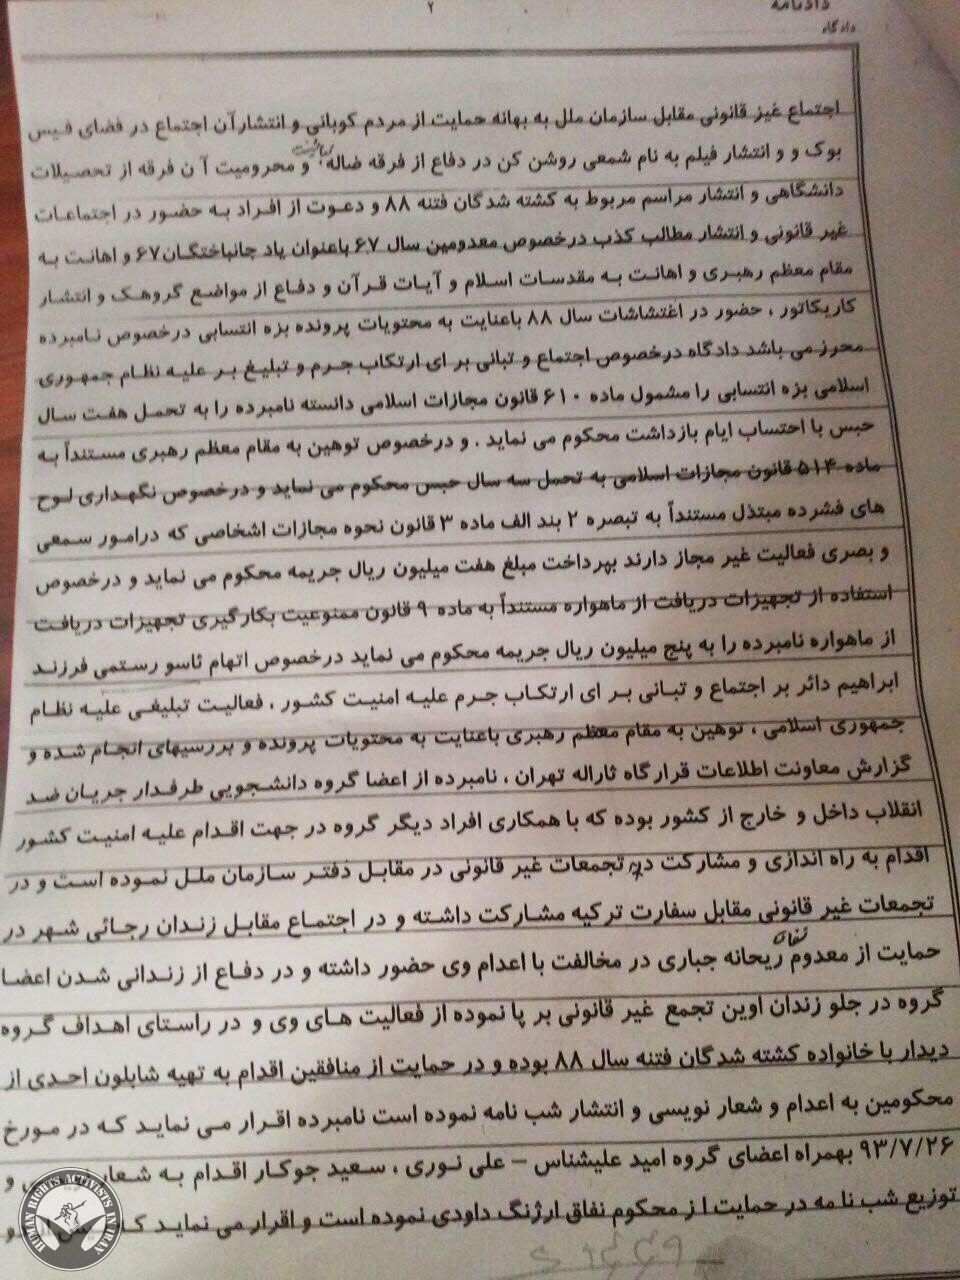 ۲
دادنامه
دادگاه
اجتماع غیز قانونی مقابل سازمان ملل به بهانه حمایت از مردم کوبانی و انتشارآن اجتماع در فضای فیس
بوک و و انتشار فیلم به نام شمعی روشن کن در دفاع از فرقه ضاله و محرومیت آن فرقه از تحصیلات
دانشگاهی و انتشار مراسم مربوط به کشته شدگان فتنه ۸۸ و دعوت از افراد به حضور در اجتماعات
غیر قانونی و انتشار مطالب کذب درخصوص معدومین سال ۶۷ باعنوان یاد جانباختگان۶۷ و اهانت به
مقام معظم رهبری و اهانت به مقدسات اسلام و آیات قرآن و دفاع از مواضع گروهک و انتشار
کاریکاتور ، حضور در اغتشاشات سال ۸۸ باعنایت به محتویات پرونده بزه انتسابی درخصوص نامبرده
محرز می باشد دادگاه درخصوص اجتماع و تبانی بر ای ارتکاب جرم و تبلیغ بر علیه نظام جمهوری
اسلامی بزه انتسابی را مشمول ماده ۶۱۰ قانون مجازات اسلامی دانسته نامبرده را به تحمل هفت سال
حبس با احتساب ایام بازداشت محکوم می نماید . و درخصوص توهین به مقام معظم رهبری مستنداً به
ماده ۵۱۴ قانون مجازات اسلامی به تحمل سه سال حبس محکوم می نماید و درخصوص نگهداری لوح
های فشرده مبتذل مستنداً به تبصره ۲ بند الف ماده ۳ قانون نحوه مجازات اشخاصی که درامور سمعی
و بصری فعالیت غیر مجاز دارند بپرداخت مبلغ هفت میلیون ریال جریمه محکوم می نماید و درخصوص
استفاده از تجهیزات دریافت از ماهواره مستنداً به ماده ۹ قانون ممنوعیت بکارگیری تجهیزات دریافت
از ماهواره نامبرده را به پنج میلیون ریال جریمه محکوم می نماید درخصوص اتهام ئاسو رستمی فرزند
ابراهیم دائر بر اجتماع و تبانی بر ای ارتکاب جرم علیه امنیت کشور ، فعالیت تبلیغی علیه نظام
جمهوری اسلامی ، توهین به مقام معظم رهبری باعنایت به محتویات پرونده و بررسیهای انجام شده و
گزارش معاونت اطلاعات قرارگاه ثاراله تهران ، نامبرده از اعضا گروه دانشجویی طرفدار جریان ضد
انقلاب داخل و خارج از کشور بوده که با همکاری افراد دیگر گروه در جهت اقدام علیه امنیت کشور
اقدام به راه اندازی و مشارکت در تجمعات غیر قانونی در مقابل دفتر سازمان ملل نموده است و در
تجمعات غیر قانونی مقابل سفارت ترکیه مشارکت داشته و در اجتماع مقابل زندان رجائی شهر در
حمایت از معدوم ریحانه جباری در مخالفت با اعدام وی حضور داشته و در دفاع از زندانی شدن اعضا
گروه در جلو زندان اوین تجمع غیر قانونی بر پا نموده از فعالیت های وی و در راستای اهداف گروه
دیدار با خانواده کشته شدگان فتنه سال ۸۸ بوده و در حمایت از منافقین اقدام به تهیه شابلون احدی از
محکومین به اعدام و شعار نویسی و انتشار شب نامه نموده است نامبرده اقرار می نماید که در مورخ
۹۳/۷/۲۶ بهمراه اعضای گروه امید علیشناس – علی نوری ، سعید جوکار اقدام به شعار و
توزیع شب نامه در حمایت ا ز محکوم نفاق ارژنگ داودی نموده است و اقرار می نماید و
HUMAN RIGHTS ACTIVISTS IN IRAN